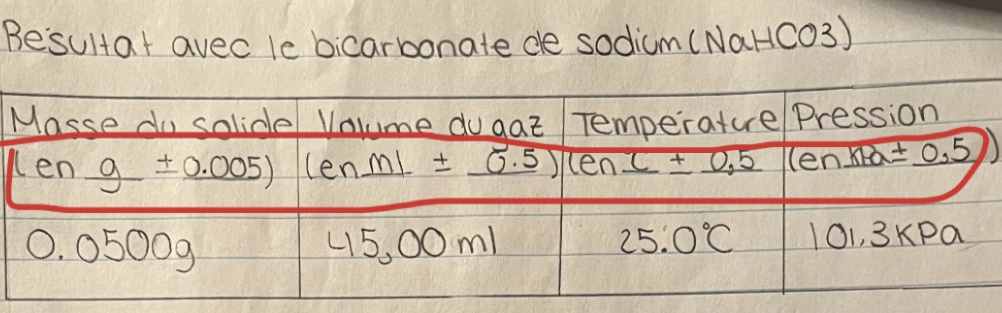 Resultat avec le bicarbonate de sodium (NaHCO3)
Masse du solide Volume du gaz Température Pression
(en g ± 0.005) (en ml ± 0.5) (en C ± 0,5 (en kPa ± 0,5)
0.0500g 45,00 ml 25.0°C 101.3 KPa